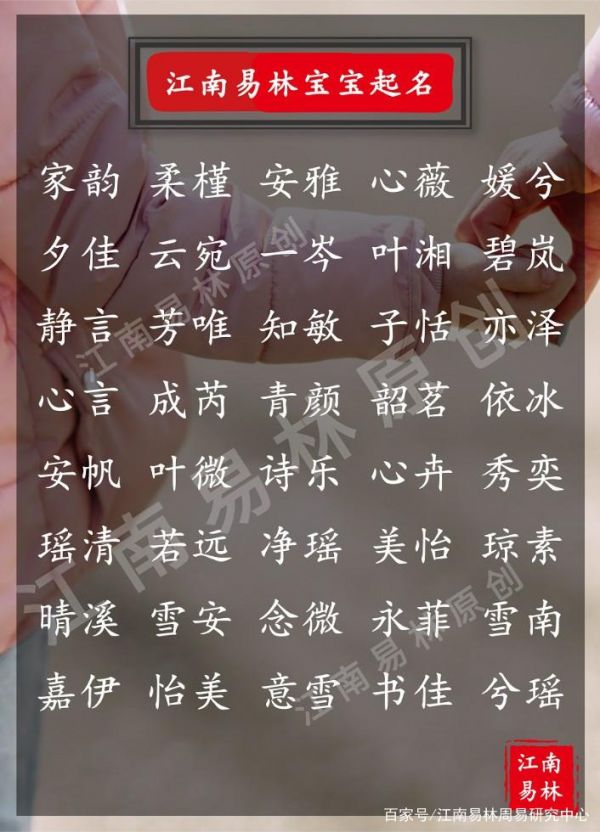 江南易林宝宝起名
家韵 柔槿 安雅 心薇 媛兮
夕佳 云宛 一岑 叶湘 碧岚
静言 芳唯 知敏 子恬 亦泽
心言 成芮 青颜 韶茗 依冰
安帆 叶微 诗乐 心卉 秀奕
瑶清 若远 净瑶 美怡 琼素
晴溪 雪安 念微 永菲 雪南
嘉伊 怡美 意雪 书佳 兮瑶
江南易林原创
江南易林原创
江南易林原创
江南
易林
百家号/江南易林周易研究中心